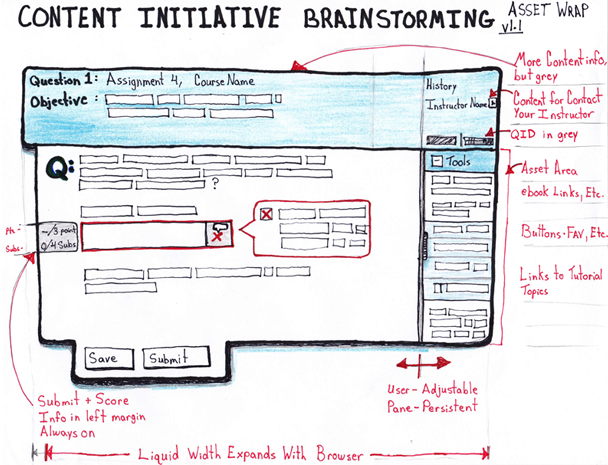 CONTENT INITIATIVE BRAINSTORMING
ASSET WRAP
v1.1
More Content info,
but grey
Question 1: Assignment 4, Course Name
Objective :
History
Instructor Name
Content for Contact
Your Instructor
QID in grey
Q:
?
Tools
Asset Area
ebook Links, Etc.
Buttons · FAV, Etc.
Links to Tutorial
Topics
Pts -
--/3 point
Subs -
0/4 Subs
Save
Submit
Submit + Score
Info in left margin
Always on
User - Adjustable
Pane - Persistent
Liquid Width Expands With Browser